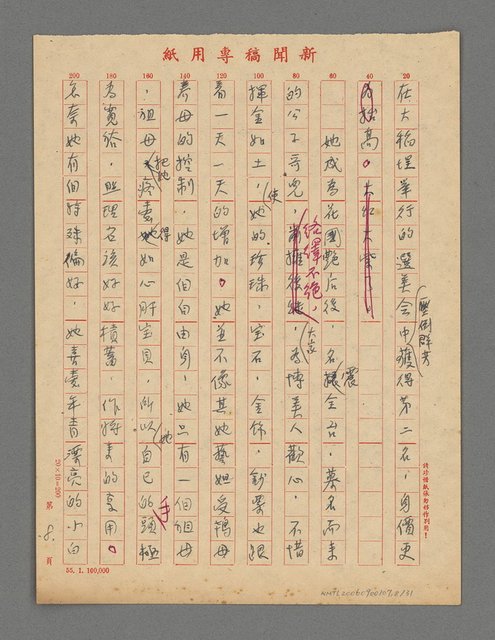 紙用專稿聞新
200 180 160 140 120 100 80 60 40 20
在大稻埕舉行的選美會中獲得第二名,身價更
豔倒群芳
抬高。大紅大紫,
她成為花國艷后後,名震全台,慕名而來
的公子哥兒,絡繹不絕,大家為博美人歡心,不惜
揮金如土,使她的珍珠,宝石,金飾,鈔票也跟
着一天一天的增加。她並不像其她藝妲受鴇母
養母的控制,她是個自由身,她只有一個祖母
,祖母把她疼愛得如心肝宝貝,所以她自己的手頭極
為寬裕,照理名該好好積蓄,作將來的享用。
怎奈她有個特殊偏好,她喜愛年青漂亮的小白
請珍惜紙張勿移作別用!
20×10=200
第 8 頁
55.1.100,000
KMTL20060900107.8/31